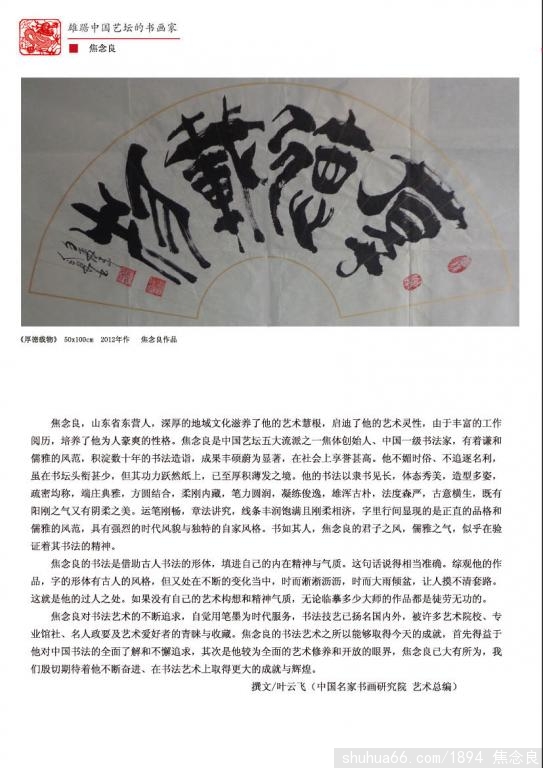 雄踞中国艺坛的书画家
焦念良
厚德載物
《厚德载物》 50x100cm 2012年作 焦念良作品
焦念良，山东省东营人，深厚的地域文化滋养了他的艺术慧根，启迪了他的艺术灵性，由于丰富的工作
阅历，培养了他为人豪爽的性格。焦念良是中国艺坛五大流派之一焦体创始人、中国一级书法家，有着谦和
儒雅的风范，积淀数十年的书法造诣，成果丰硕蔚为显著，在社会上享誉甚高。他不媚时俗、不追逐名利，
虽在书坛头衔甚少，但其功力跃然纸上，已至厚积薄发之境。他的书法以隶书见长，体态秀美，造型多姿，
疏密均称，端庄典雅，方圆结合，柔刚内藏，笔力圆润，凝练俊逸，雄浑古朴，法度森严，古意横生，既有
阳刚之气又有阴柔之美。运笔刚畅，章法讲究，线条丰润饱满且刚柔相济，字里行间显现的是正直的品格和
儒雅的风范，具有强烈的时代风貌与独特的自家风格。书如其人，焦念良的君子之风，儒雅之气，似乎在验
证着其书法的精神。
焦念良的书法是借助古人书法的形体，填进自己的内在精神与气质。这句话说得相当准确。综观他的作
品，字的形体有古人的风格，但又处在不断的变化当中，时而淅淅沥沥，时而大雨倾盆，让人摸不清套路。
这就是他的过人之处。如果没有自己的艺术构想和精神气质，无论临摹多少大师的作品都是徒劳无功的。
焦念良对书法艺术的不断追求，自觉用笔墨为时代服务，书法技艺已扬名国内外，被许多艺术院校、专
业馆社、名人政要及艺术爱好者的青睐与收藏。焦念良的书法艺术之所以能够取得今天的成就，首先得益于
他对中国书法的全面了解和不懈追求，其次是他较为全面的艺术修养和开放的眼界，焦念良已大有所为，我
们殷切期待着他不断奋进、在书法艺术上取得更大的成就与辉煌。
撰文/叶云飞（中国名家书画研究院 艺术总编）
shuhua66.com/1894 焦念良